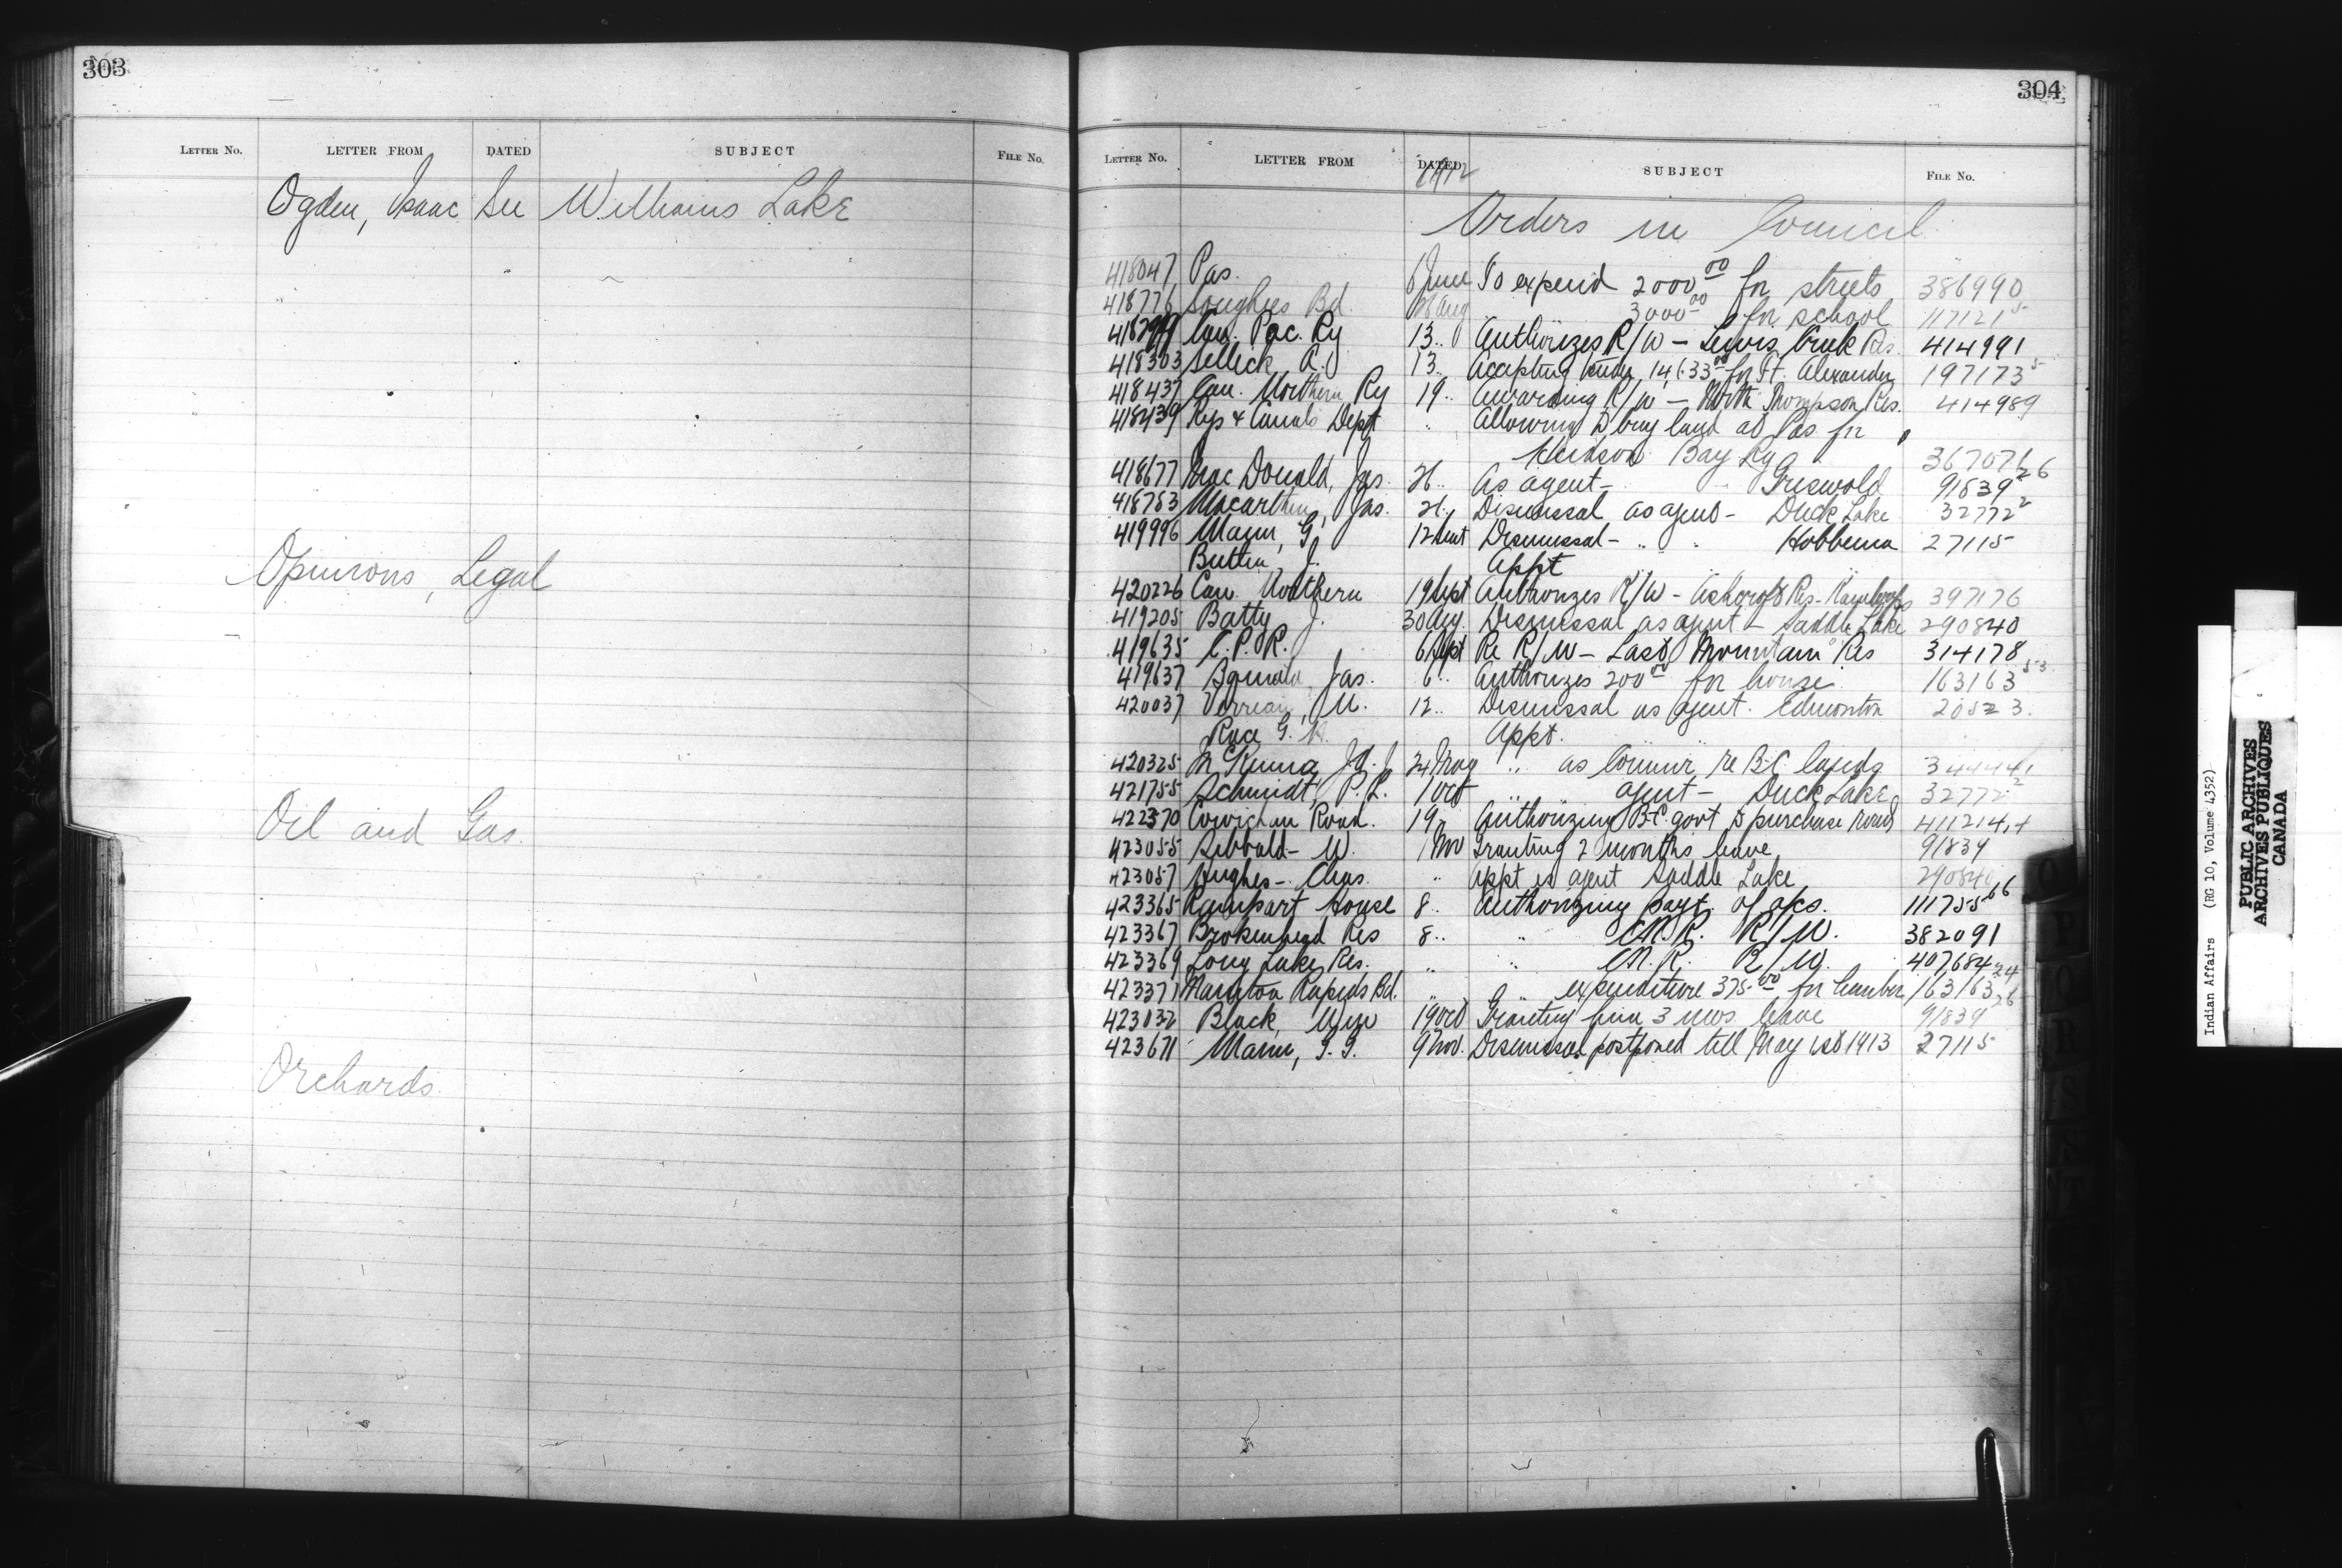 303
LETTER NO. LETTER FROM DATED SUBJECT FILE NO.
Ogden, Isaac See Williams Lake
Opinions, Legal
Oil and Gas.
Orchards.
304
LETTER NO. LETTER FROM DATED SUBJECT FILE NO.
1912
Orders in Council
418047 Pas. 6 June To expend 2000.00 for streets 386990
418776 Bd. Aug 3000.00 for school
Can. Pac. Ry 13 .. Authorizes R/W – Creek Res. 414991
418303 Selleck, A. 13 .. Accepting tender, for St. Alexander 197173 5
418437 Can. Northern Ry 19 .. Awarding R/W – North Thompson Res. 414989
418439 Rys & Canals Dept .. Allowing to buy land at Pas for
Hudson Bay Ry
418677 MacDonald, Jas. 26 .. As agent – Griswold 91839 26
418753 Macarthur, Jas. Dismissal as agent – Duck Lake 32772 2
419996 Mann, G 12 Sept Dismissal – .. .. Hobbema 27115
Butlin, J. Appt
420226 Can. Northern 19 Sept Authorizes R/W – Ashcroft Res – Kamloops 397176
419205 Batty J. 30 Aug. Dismissal as agent – Saddle Lake 290840
419635 C.P.R. 6 Sept Re R/W – Last Mountain Res 314178
419637 Jas. 6 .. Authorizes 200.00 for house 163163 53
420037 M. 12 .. Dismissal as agent. Edmonton 20523.
Race G. H. Appt.
420325 McKenna, J.A.J 24 May .. as Commr re B.C. lands
421755 Schmidt, P.L. 1 Oct .. agent – Duck Lake 32772 2
422370 Cowichan Road. 19 .. Authorizing B.C. govt to purchase road
423055 Sibbald – W. 1 Nov Granting 2 months leave 91839
423057 Hughes – Chas. .. Appt as agent Saddle Lake 290840
423365 Rampart House 8 .. Authorizing payt. of a/cs. 111755 66
423367 Brokenhead Res 8 .. .. C.N.R. R/W. 382091
423369 Long Lake Res. .. .. C.N.R. R/W. 407684
423371 Rapids Bd. .. .. expenditure 375.00 for lumber 163163 24
Black, Wm 19 Oct Granting him 3 mos leave 91839 26
423671 Mann, G.G. 9 Nov. Dismissal postponed till May 1st 1913 27115
Indian Affairs (RG 10, Volume 4352)
PUBLIC ARCHIVES
ARCHIVES PUBLIQUES
CANADA